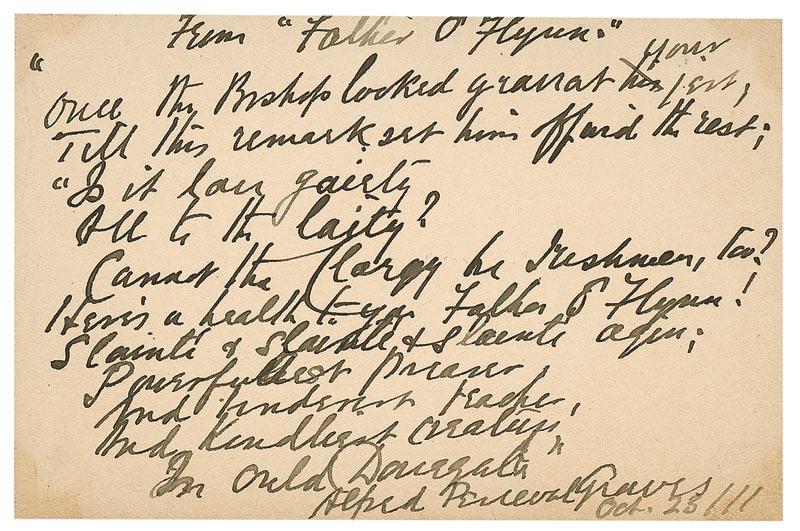 From "Father O'Flynn."
your
"Once the Bishop looked grave at his jest,
Till this remark set him off and the rest;
"Is it lave gaiety
All to the laity?
Cannot the Clargy be Irishmen, too?
Here's a health to you Father O'Flynn!
Slainté & Slainté & Slainté agin;
Powerfullest preacher,
And tinderest teacher,
And Kindliest creature,
In ould Donegal."
Alfred Perceval Graves
Oct. 23/11